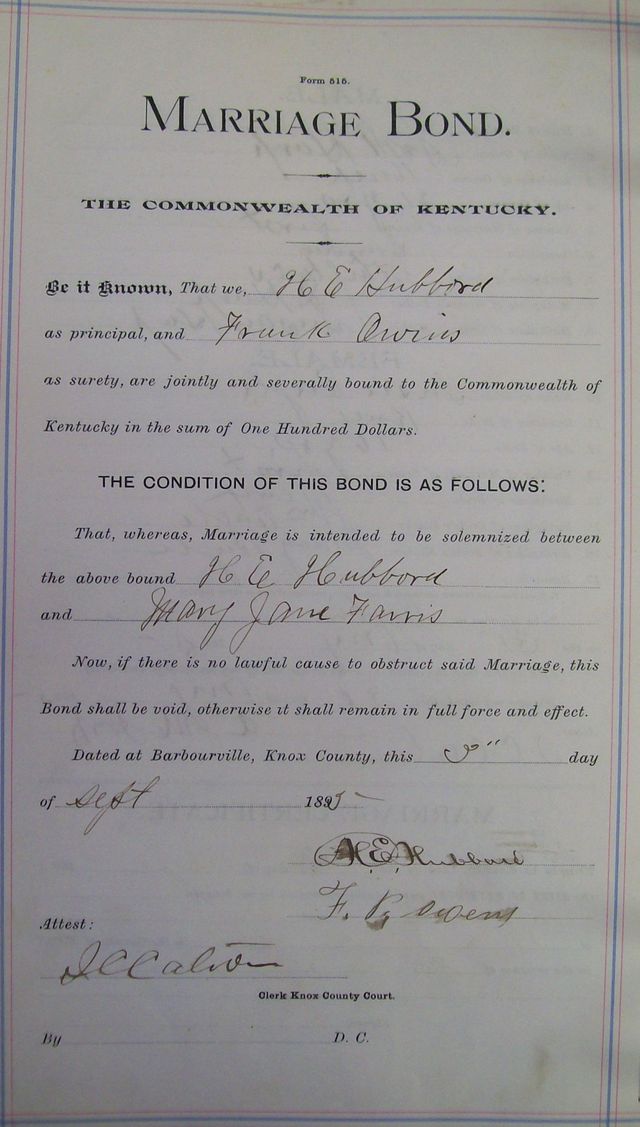 Form 515.
MARRIAGE BOND.
THE COMMONWEALTH OF KENTUCKY.
Be it Known, That we, H E Hubbord
as principal, and Frank Owins
as surety, are jointly and severally bound to the Commonwealth of
Kentucky in the sum of One Hundred Dollars.
THE CONDITION OF THIS BOND IS AS FOLLOWS:
That, whereas, Marriage is intended to be solemnized between
the above bound H E Hubbord
and Mary Jane Farris
Now, if there is no lawful cause to obstruct said Marriage, this
Bond shall be void, otherwise it shall remain in full force and effect.
Dated at Barbourville, Knox County, this 3" day
of Sept 1895
H. E. Hubbard
F. Owens
Attest:
Clerk Knox County Court.
By D. C.